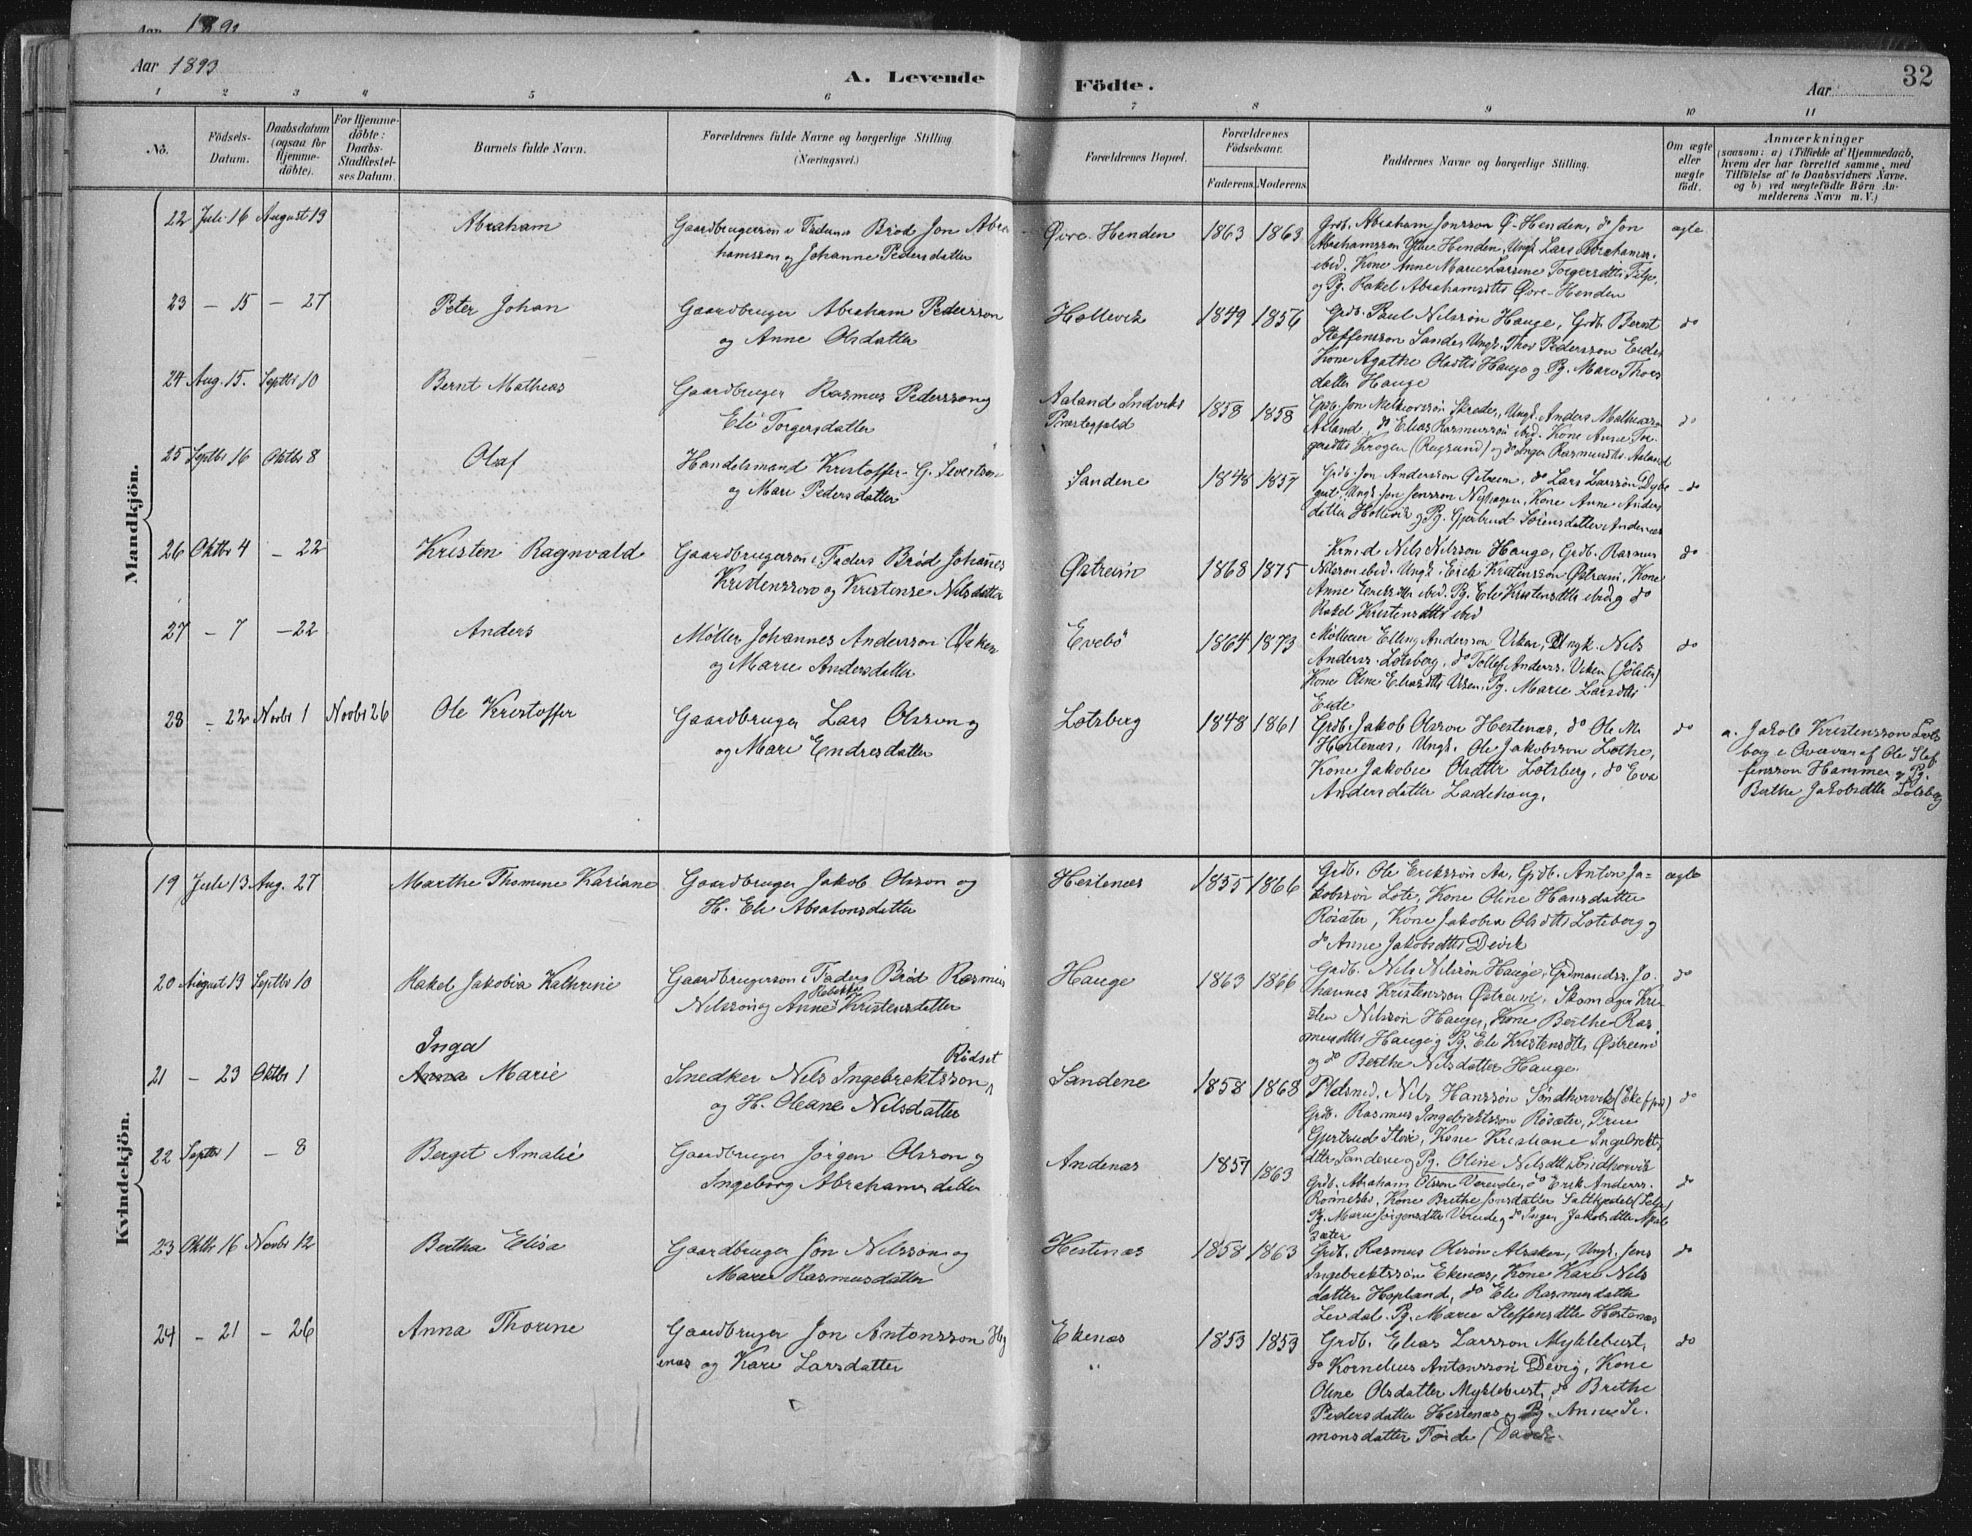 Aar 1893
A. Levende Födte.
Aar
32
1 2 3 4 5 6 7 8 9 10 11
No.
Födsels-Datum.
Daabsdatum (ogsaa for Hjemme-döbte).
For Hjemme-döbte: Daabs-Stadfæstel-ses Datum.
Barnets fulde Navn.
Forældrenes fulde Navne og borgerlige Stilling (Næringsvei.)
Forældrenes Bopæl.
Forældrenes Födselsaar.
Faderens. Moderens.
Faddernes Navne og borgerlige Stilling.
Om ægte eller uægte födt.
Anmærkninger
(saasom: a) i Tilfælde af Hjemmedaab,
hvem der har forrettet samme, med
Tilföielse af to Daabsvidners Navne,
og b) ved uægtefödte Börn An-
melderens Navn m. V.)
Mandkjön.
22 Juli 16 August 19 Abraham
Gaardbrugersøn i Faderens Brød Jon Abra
hamsson og Johanne Pedersdatter
Øvre-Henden 1863 1863
Grdb. Abraham Jonsson Ø-Henden, do Jon
Abrahamsson Henden, Ungk. Lars Abrahamss.
ibid. Kone Anne Marie Larsine Torgersdtr
og Pg. Rakel Abrahamsdtr Øvre-Henden
ægte
23 - 15 - 27 Peter Johan
Gaardbruger Abraham Pedersson
og Anne Olsdatter
Hollevik 1849 1856
Grdb. Paul Nilsson Hauge, Grdb. Bernt
Steffensson Sande, Ungk. Thor Pedersson Eide
Kone Agathe Olsdtr Hauge og Pg. Mari Thors
datter Hauge
do
24 Aug. 15. Septbr 10 Bernt Mathias
Gaardbruger Rasmus Pedersson og
Eli Torgersdatter
Aaland Indviks
Præstegjeld 1858 1858
Grdb. Jon Melkiorsson, Ungk. Anders Mathiasson
Aaland, do Elias Rasmussøn ibid. Kone Anne
Krogen (Rugsund) og do Inger Rasmusdtr. Aaland
do
25 Septbr 16 Oktbr 8 Olaf
Handelsmand Kristoffer G. Sivertsen
og Mari Pedersdatter
Sandene 1848 1857
Grdb. Jon Andersson Østreim, do Lars Larsson
Ungk. Jon Jonsson Nyhagen, Kone Anne Anders
datter Hollevik og Pg. Gjertrud Sørensdatter Andenæs
do
26 Oktbr 4 - 22 Kristen Ragnvald
Gaardbrugersøn i Faders Brød Johannes
Kristensson og Kristense Nilsdatter
Østreim 1868 1875
Nils Nilsson Hauge, Grdb. Rasmus
Nilsson ibid. Ungk. Erik Kristensson Østreim, Kone
Anne Eriksdtr ibid. Pg. Eli Kristensdtr ibid og do
Rakel Kristensdtr ibid
do
27 - 7 - 22 Anders
Møller Johannes Andersson
og Marie Andersdatter
Evebö 1864 1873
Mölleren Elling Andersson Viken, Ungk. Nils
Anderss. Lotsberg, do Tollef Anderss. Viken (Jölster)
Kone Oline Eliasdtr Viken, Pg. Marie Larsdtr
Eide
do
28 - 22 Novbr 1 Novbr 26 Ole Kristoffer
Gaardbruger Lars Olsson og
og Mari Endresdatter
Lotsberg 1848 1861
Grdb. Jakob Olsson Hestenæs, do Ole M.
Hestenæs, Ungk. Ole Jakobsson Lothe,
Kone Jakobie Olsdtr Lotsberg, do Eva
Andersdatter Ladehoug.
do
a. Jakob Kristensson Lots
berg i Overvær af Ole Stef
fensson Hammer og Pg.
Berthe Jakobsdtr Lotsberg
Kvindekjön.
19 Juli 13 Aug. 27 Marthe Thomine Kariane
Gaardbruger Jakob Olsson og
H. Eli Absalonsdatter
Hestenæs 1855 1866
Grdb. Ole Eriksson Aa, Grdb. Anton Ja-
kobsson Lote, Kone Oline Hansdatter
Rösæter, Kone Jakobia Olsdtr Lotsberg og
do Anne Jakobsdtr Devik
ægte
20 August 19 Septbr 10 Rakel Jakobia Kathrine
Gaardbrugersøn i Faders Brød Rasmus
Nilsson og Anne Rebekka Kristensdatter
Hauge 1863 1866
Grdb. Nils Nilsson Hauge, Grdmandss. Jo-
hannes Kristensson Østreim, Skomager Kri-
sten Nilsson Hauge, Kone Berthe Ras
musdtr Hauge og Pg. Eli Kristensdtr Østreim
og do Berthe Nilsdatter Hauge.
do
21 - 23 Oktbr 1 Inga
Anna Marie
Snedker Nils Ingebrektsson Rödset
og H. Oleane Nilsdatter
Sandene 1858 1868
Pladsmd. Nils Hansson Söndhorvik
Grdb. Rasmus Ingebrektsson Rösæter, Frue
Gjertrud, Kone Kristiane Ingebrekt
dtr Sandene og Pg. Oline Nilsdtr Sindhorvik
do
22 Septbr 1 - 8 Berget Amalie
Gaardbruger Jörgen Olsson og
Ingeborg Abrahamsdatter
Andenæs 1857 1863
Grdb. Abraham Olsson Vereide, do Erik Anderss.
Kone Brithe Jonsdatter
Pg. Marie Jörgensdtr Vereide og do Inger Jakobsdtr Myk
sæter
do
23 Oktbr 16 Novbr 12 Bertha Elisa
Gaardbruger Jon Nilsson og
Mari Rasmusdatter
Hestenæs 1858 1863
Grdb. Rasmus Olsson Alsaker, Ungk. Jens
Ingebrektsson Ekenæs, Kone Kari Nils
datter Hopland, do Eli Rasmusdatter
Levdal Pg. Marie Steffensdtr Hestenæs
do
24 - 21 - 26 Anna Thorine
Gaardbruger Jon Antonsson
og Kari Larsdatter
Ekenæs 1853 1853
Grdb. Elias Larsson Myklebust,
do Kornelius Antonsson Devig, Kone
Oline Olsdatter Myklebust, do Brithe
Pedersdatter Hestenæs og Pg. Anne Si-
monsdatter Förde (Davik.
do